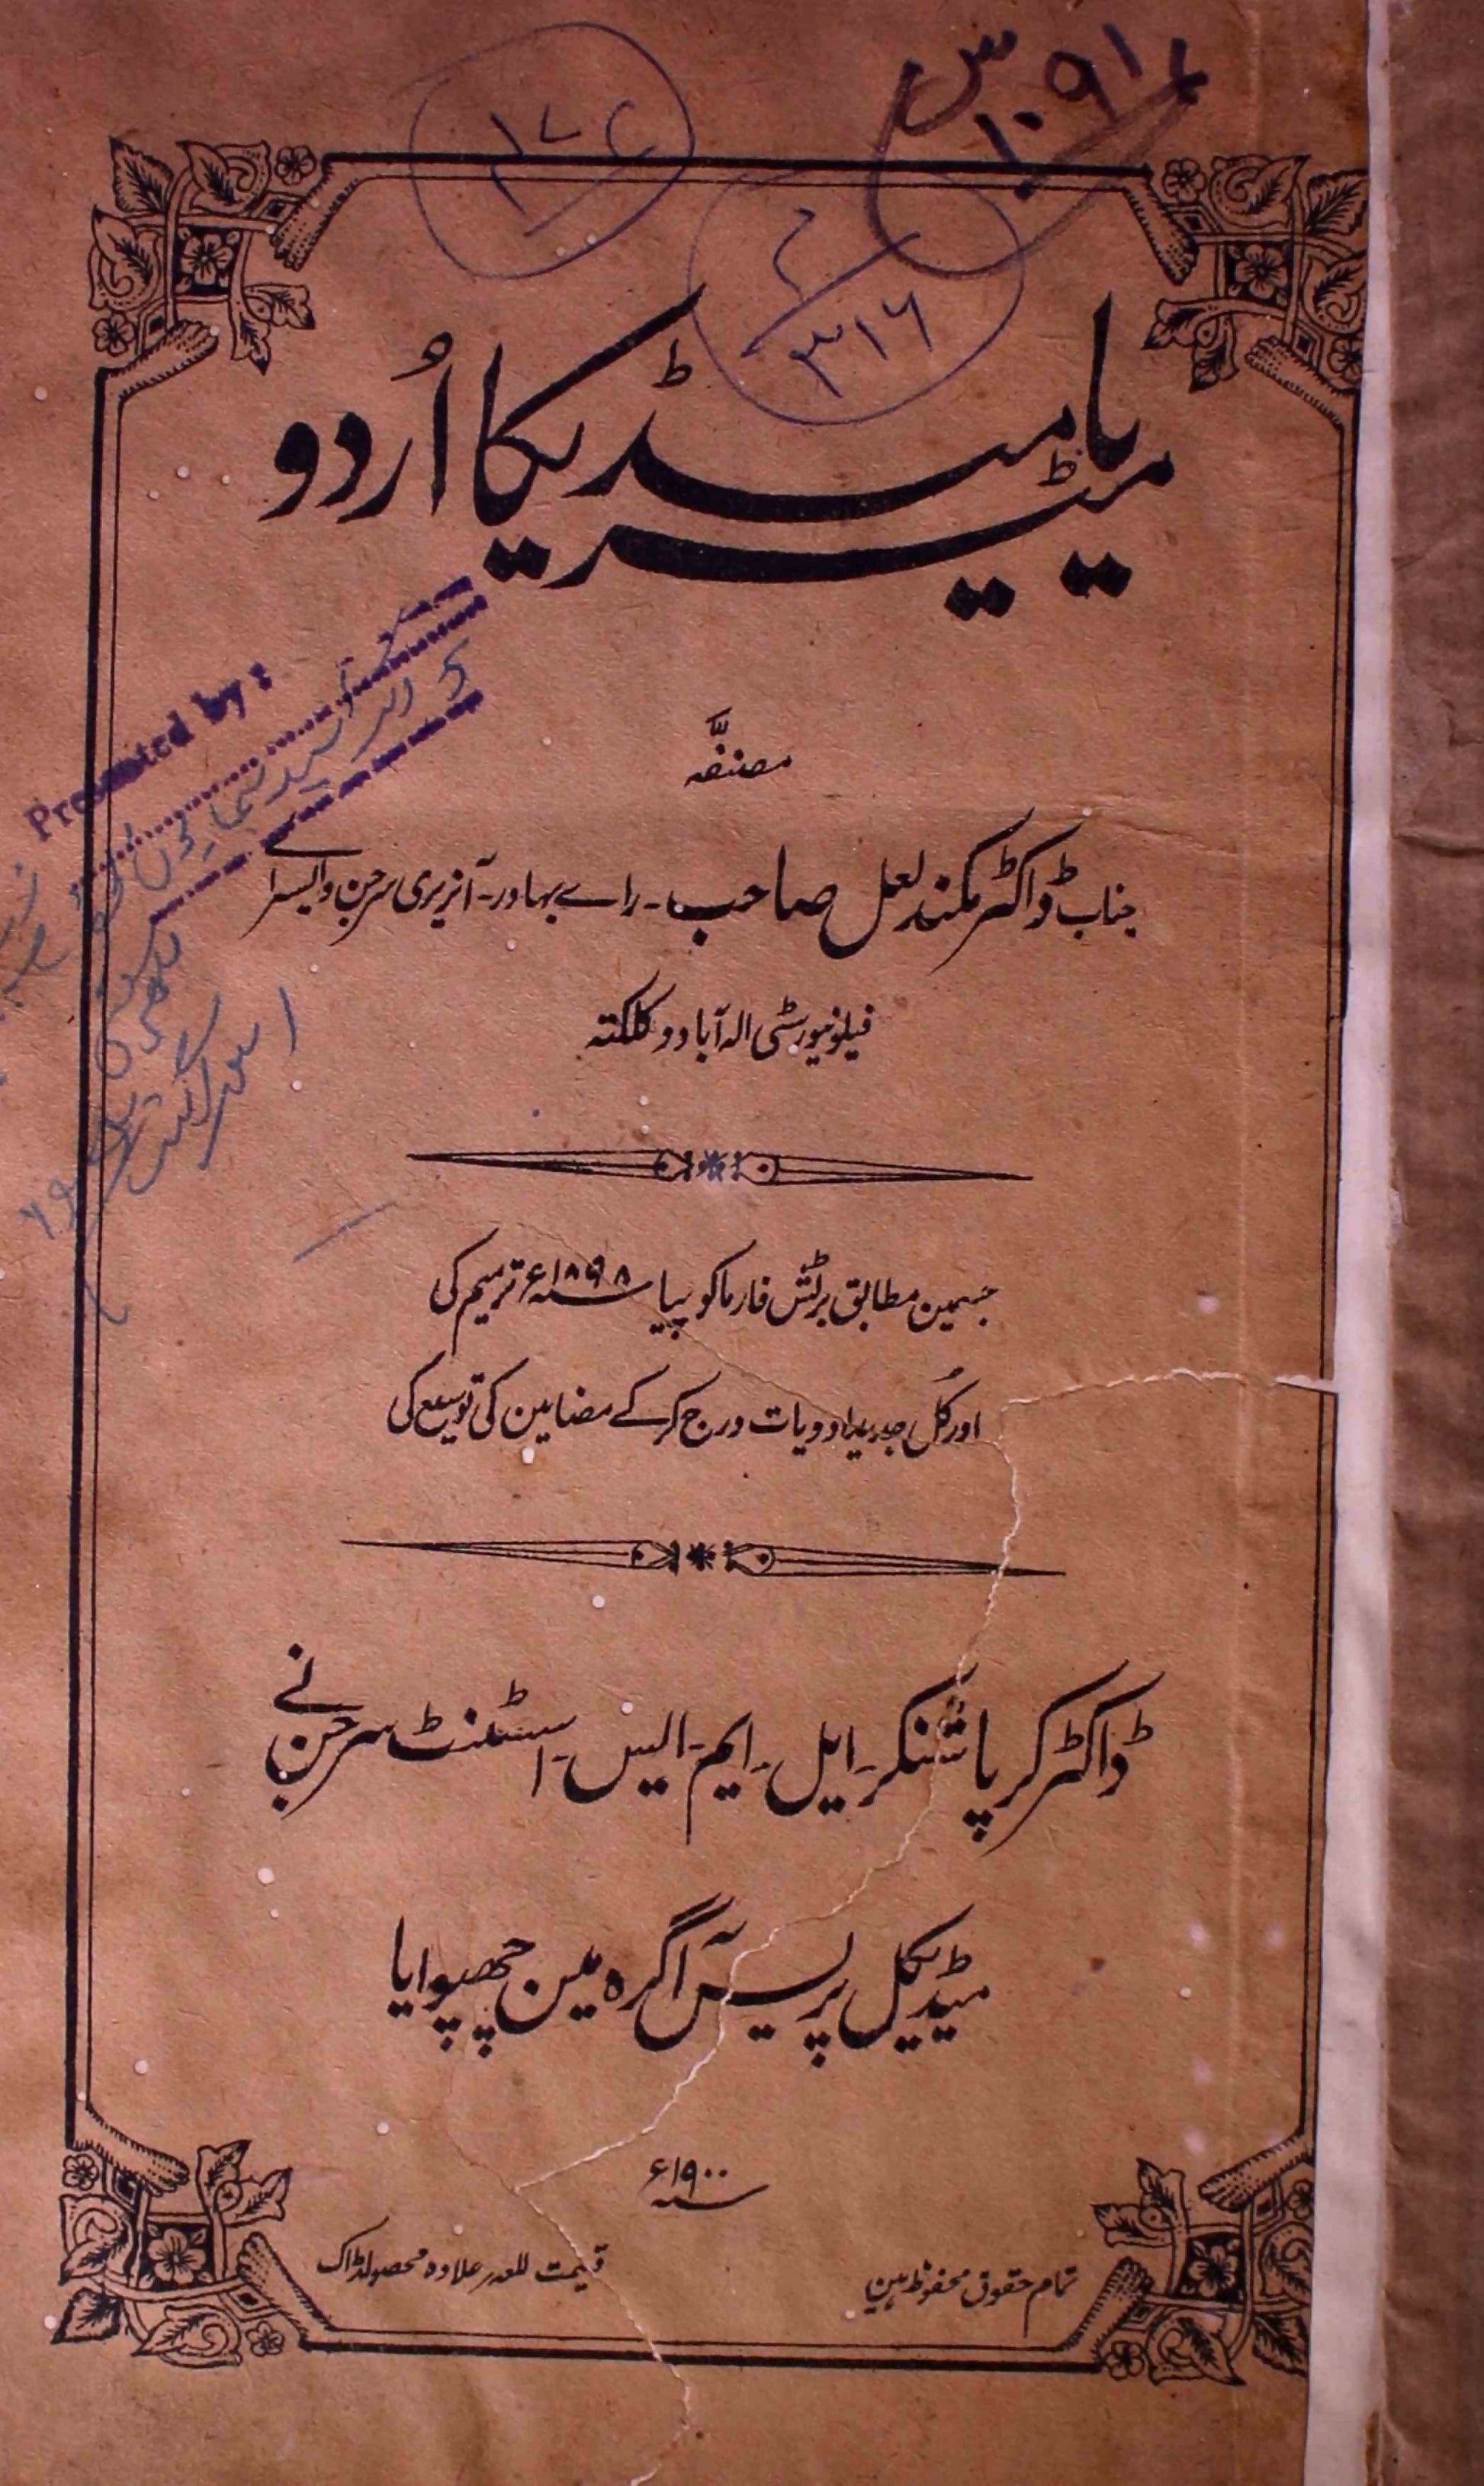 ۱۷۲
۶۱۰٫۹۱
۳۱۶
میٹیریا میڈیکا اُردو
Presented by :
مصنفہ
جناب ڈاکٹر مکند لعل صاحب۔ راے بہادر۔ آنریری سرجن وایسراے
فیلو یونیورسٹی الہ آباد و کلکتہ
جسمین مطابق برٹش فارماکوپیا سنہ ۱۸۹۸ء ترمیم کی
اور کُل جدید ادویات درج کرکے مضامین کی توسیع کی
ڈاکٹر کرپا شنکر۔ ایل۔ ایم۔ ایس۔ اسسٹنٹ سرجن نے
میڈیکل پریس آگرہ مین چھپوایا
سنہ ۱۹۰۰ء
تمام حقوق محفوظ ہین
قیمت للعہ علاوہ محصولڈاک